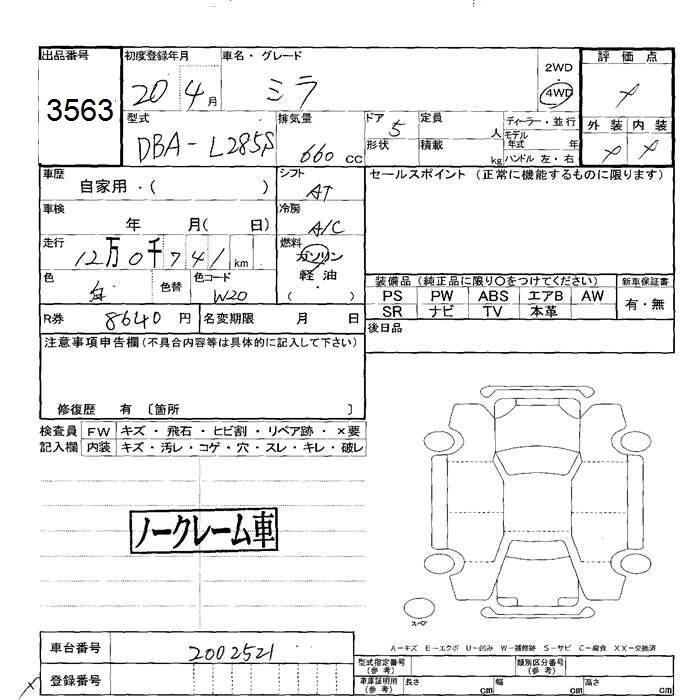 出品番号 初度登録年月 車名・グレード 2WD 評価点
3563 20 4月 ミラ 4WD
型式 排気量 ドア 定員 ディーラー・並行 外装 内装
DBA-L285S 660cc 5 人 モデル年式 年
形状 積載 kg ハンドル 左・右
車歴 シフト セールスポイント (正常に機能するものに限ります)
自家用・( ) AT
車検 冷房
年 月( 日) A/C
走行 燃料
12万0千741km ガソリン
軽油
( ・ )
色 色替 色コード 装備品 (純正品に限り○をつけてください) 新車保証書
白 W20 PS PW ABS エアB AW 有・無
SR ナビ TV 本革
R券 8640円 名変期限 月 日 後日品
注意事項申告欄(不具合内容等は具体的に記入して下さい)
修復歴 有 〔箇所 〕
検査員 FW キズ・飛石・ヒビ割・リペア跡・×要
記入欄 内装 キズ・汚レ・コゲ・穴・スレ・キレ・破レ
ノークレーム車
スペア
A-キズ E-エクボ U-凹み W-補修跡 S-サビ C-腐食 XX-交換済
車台番号 2002521 型式指定番号(参考) 類別区分番号(参考)
登録番号 車庫証明用(参考) 長さ cm 幅 cm 高さ cm